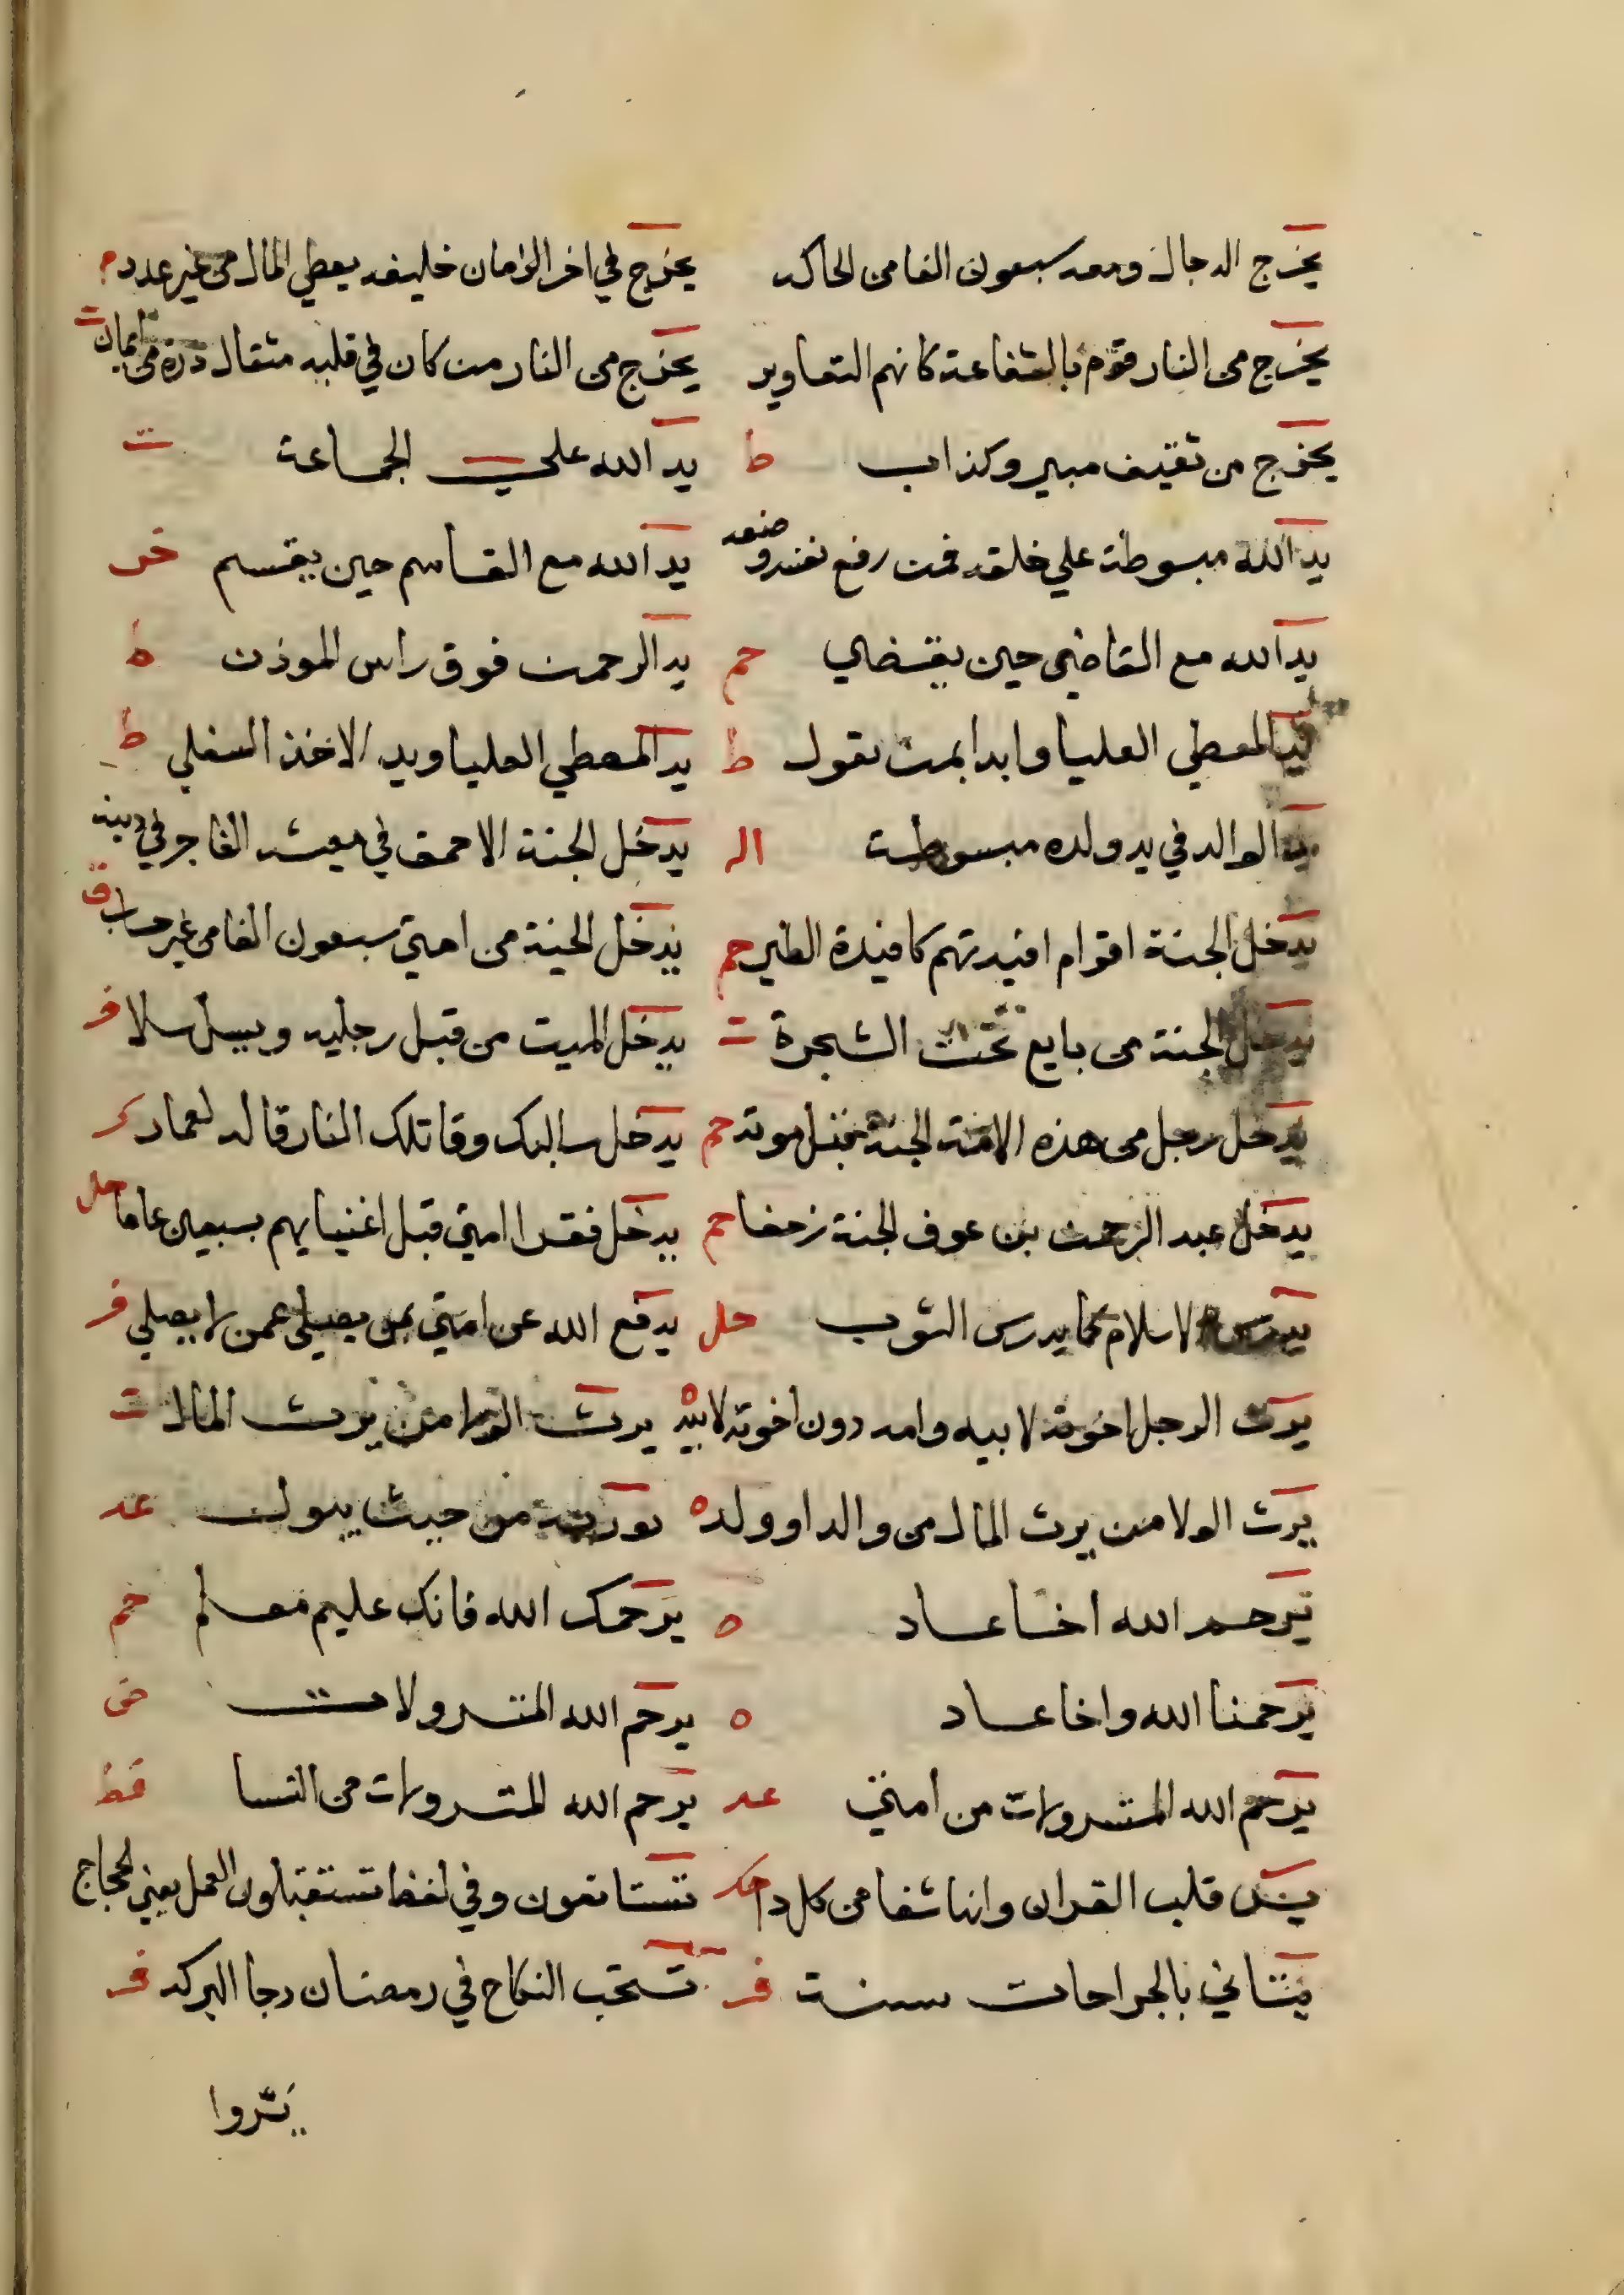 يخرج الدجال ومعه سبعون الفا من الحاكه يخرج في اخر الزمان خليفه يعطي المال من غير عدد م
يخرج من النار قوم بالشفاعة كانهم الثعاوير يخرج من النار من كان في قلبه مثقال ذرة من ايمان ت
يخرج من ثقيف مبير وكذاب ط يد الله علي الجماعة ت
يد الله مبسوطة علي خلقه فمن رفع نفسه وضعه يد الله مع القاسم حين يقسم
يد الله مع القاضي حين يقضي حم يد الرحمن فوق راس الموذن ط
يد المعطي العليا وابدا بمن تعول ط يد المعطي العليا ويد الاخذ السفلي ط
يد الوالد في يد ولده مبسوطة يدخل الجنة الاحمق في معيشه الفاجر في دينه
يدخل الجنة اقوام افيدتهم كافيدة الطير حم يدخل الجنة من امتي سبعون الفا من غير حساب ق
يدخل الجنة من بايع تحت الشجرة ت يدخل الميت من قبل رجليه ويسل سلا فر
يدخل رجل من هذه الامة الجنة قبل موته حم يدخل سالبك وقاتلك النار قاله لعمار كر
يدخل عبد الرحمن بن عوف الجنة زحفا حم يدخل فقرا امتي قبل اغنيايهم بسبعين عاما حل
يدرس الاسلام كما يدرس الثوب حل يدفع الله عن امتي بمن يصلي عمن لا يصلي فر
يرث الرجل اخوته لابيه وامه دون اخوته لابيه ه يرث الولا من يرث المال ت
يرث الولا من يرث المال من والد او ولد ه يورث من حيث يبول عد
يرحم الله اخا عاد ه يرحمك الله فانك عليم معلم حم
يرحمنا الله واخا عاد ه يرحم الله المتسرولات
يرحم الله المتسرولات من امتي عد يرحم الله المتسرولات من النسا قط
يس قلب القران وانها شفا من كل دا تستانفون وفي لفظ تستقبلون العمل يعني الحجاج
يستاني بالجراحات سنة فر تستحب النكاح في رمضان رجا البركه فر
يسروا